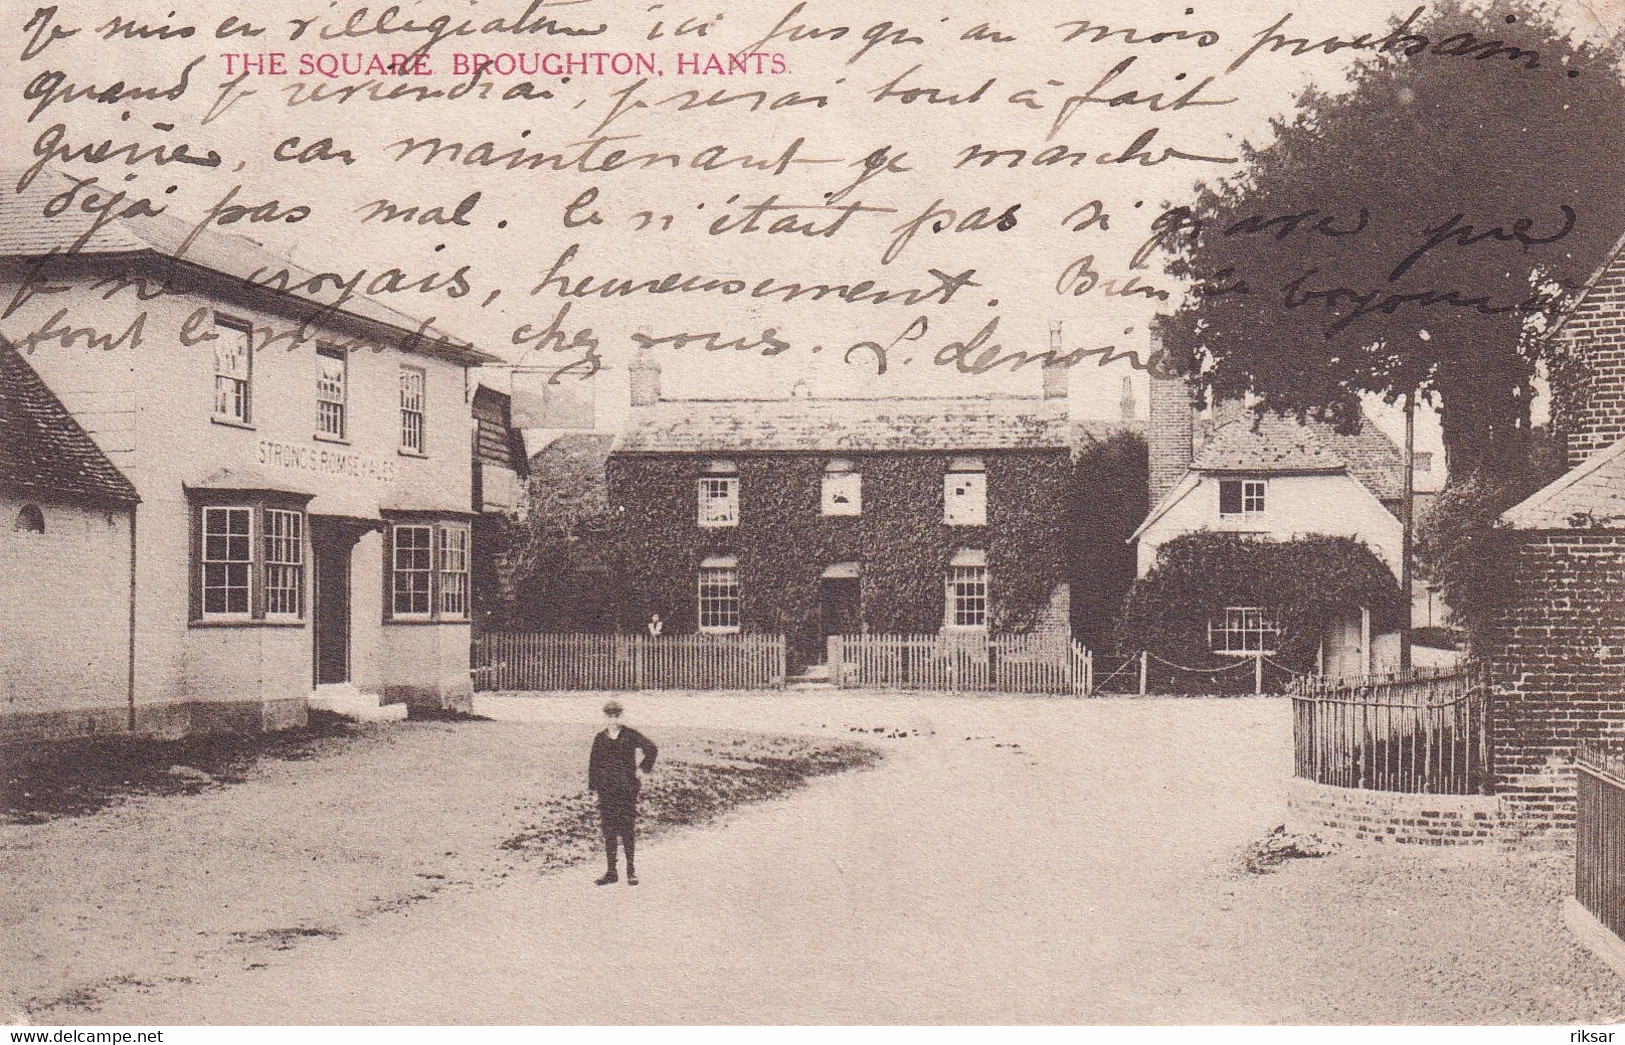 Je suis en villégiature ici jusqu'au mois prochain.
THE SQUARE BROUGHTON, HANTS.
quand je reviendrai, je serai tout à fait
guérie, car maintenant je marche
déjà pas mal. Ce n'était pas si grave que
je ne croyais, heureusement. Bien le
tout le monde chez vous. L. Lenoire
STRONG'S ROMSEY ALES
riksar